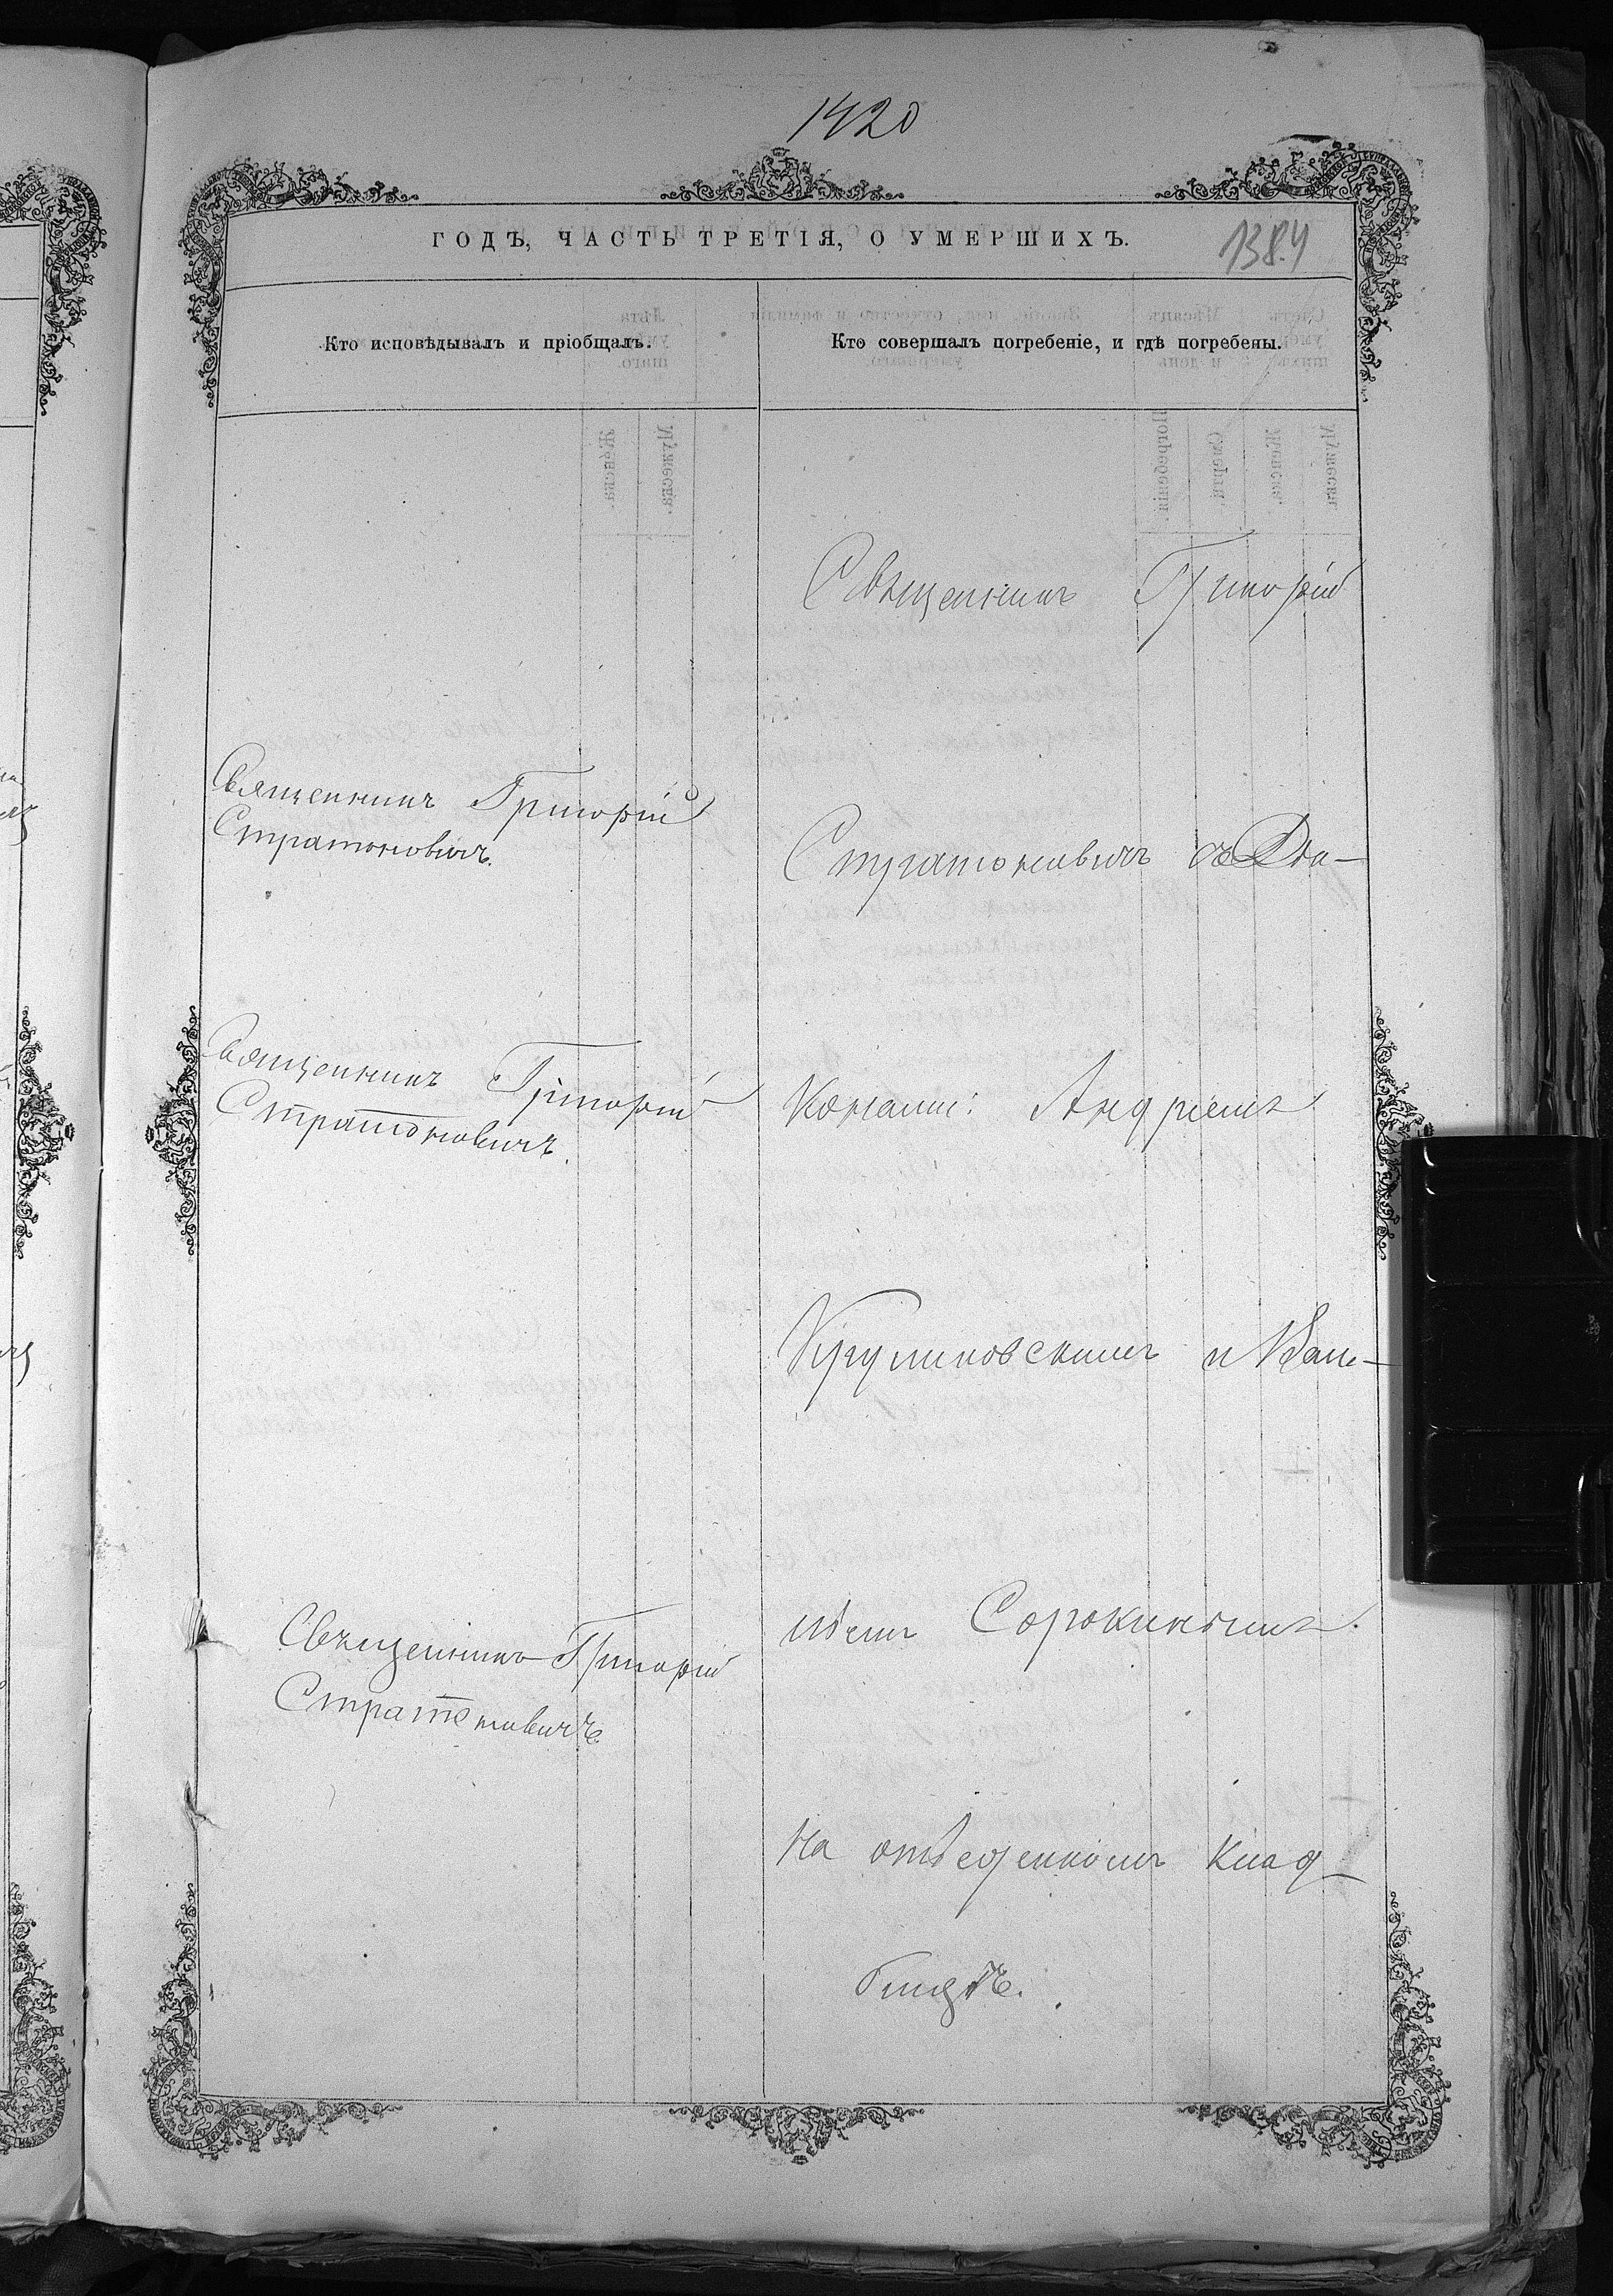 1420
ГОДЪ, ЧАСТЬ ТРЕТІЯ, О УМЕРШИХЪ.
1384
Кто исповѣдывалъ и пріобщалъ.
Кто совершалъ погребеніе, и гдѣ погребены.
Священникъ Григорій
Стратоновичъ.
Священникъ Григорій
Стратоновичъ.
Священникъ Григорій
Стратоновичъ
Священникъ Григорій
Стратоновичъ съ Діа-
конами: Андреемъ
и
Сорокинымъ.
На отведенномъ клад-
бищѣ.